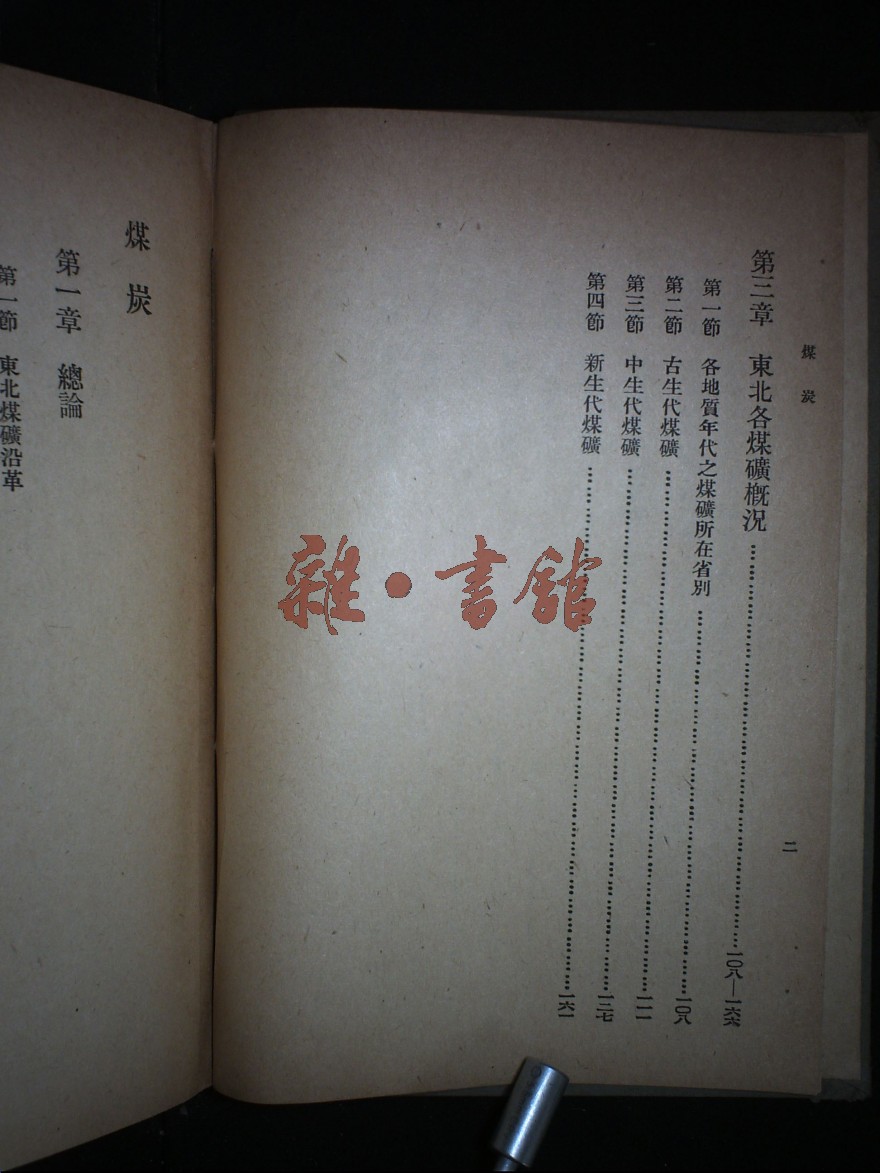 煤炭
二
第三章　東北各煤礦概況……一〇八—一六六
第一節　各地質年代之煤礦所在省別……一〇八
第二節　古生代煤礦……一一一
第三節　中生代煤礦……一三七
第四節　新生代煤礦……一六一
雜·書館
煤炭
第一章　總論
第一節　東北煤礦沿革